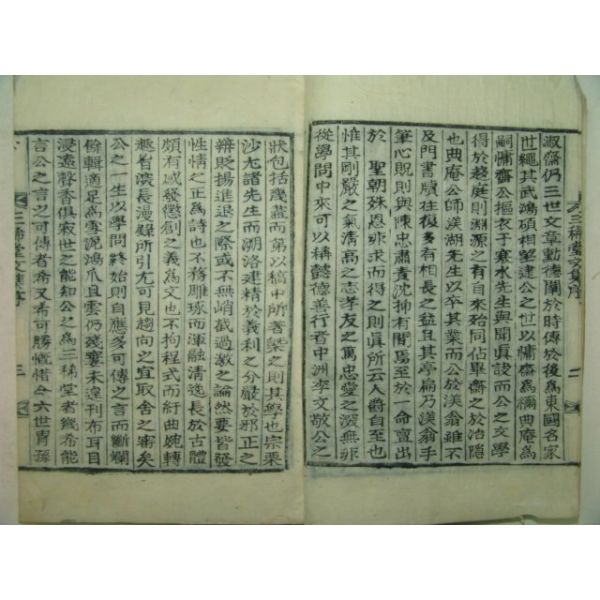 淑齋仍三世文章勳德闡於時傳於後為東國名家
世繩其武鴻碩相望建公之世有慵齋為禰曲庵為
嗣慵齋公摳衣于寒水先生與聞眞諼而公之文學
得於趍庭則淵源之有自來殆同佔畢齋之於冶隱
也曲庵公師渼湖先生以卒其業而公於渼翁雖不
及門書牘往復多有相長之益且其亭扁乃渼翁手
筆心貺則與陳忠肅責沈抑有間焉至於一命賣出
於 聖朝殊恩非求而得之則眞所云人爵自至也
惟其剛嚴之氣清高之志孝友之篤忠愛之深無非
從學問中來可以稱懿德善行者中洲李文敬公之
狀包括幾蓋而第以稿中所著槩之則其學也宗栗
沙尤諸先生而溯洛建精於義利之分嚴於邪正之
辨貶揚進退之際或不無峭截過激之論然要皆發
性情之正為詩也不務雕琢而渾融清逸長於古體
頗有感發懲創之義為文也不拘程式而紆曲婉轉
趣旨淡長漫錄所引尤可見趨向之宜取舍之審矣
公之一生以學問終始則自應多可傳之言而斷爛
餘輯適足為雪泥鴻爪且雲仍殘寠未遑刊布耳目
浸遠聲香俱寂世之能知公為三稀堂者幾希能
言公之言之可傳者希又希可勝慨惜今六世胄孫
三稀堂文集序 二
三稀堂文集序 三